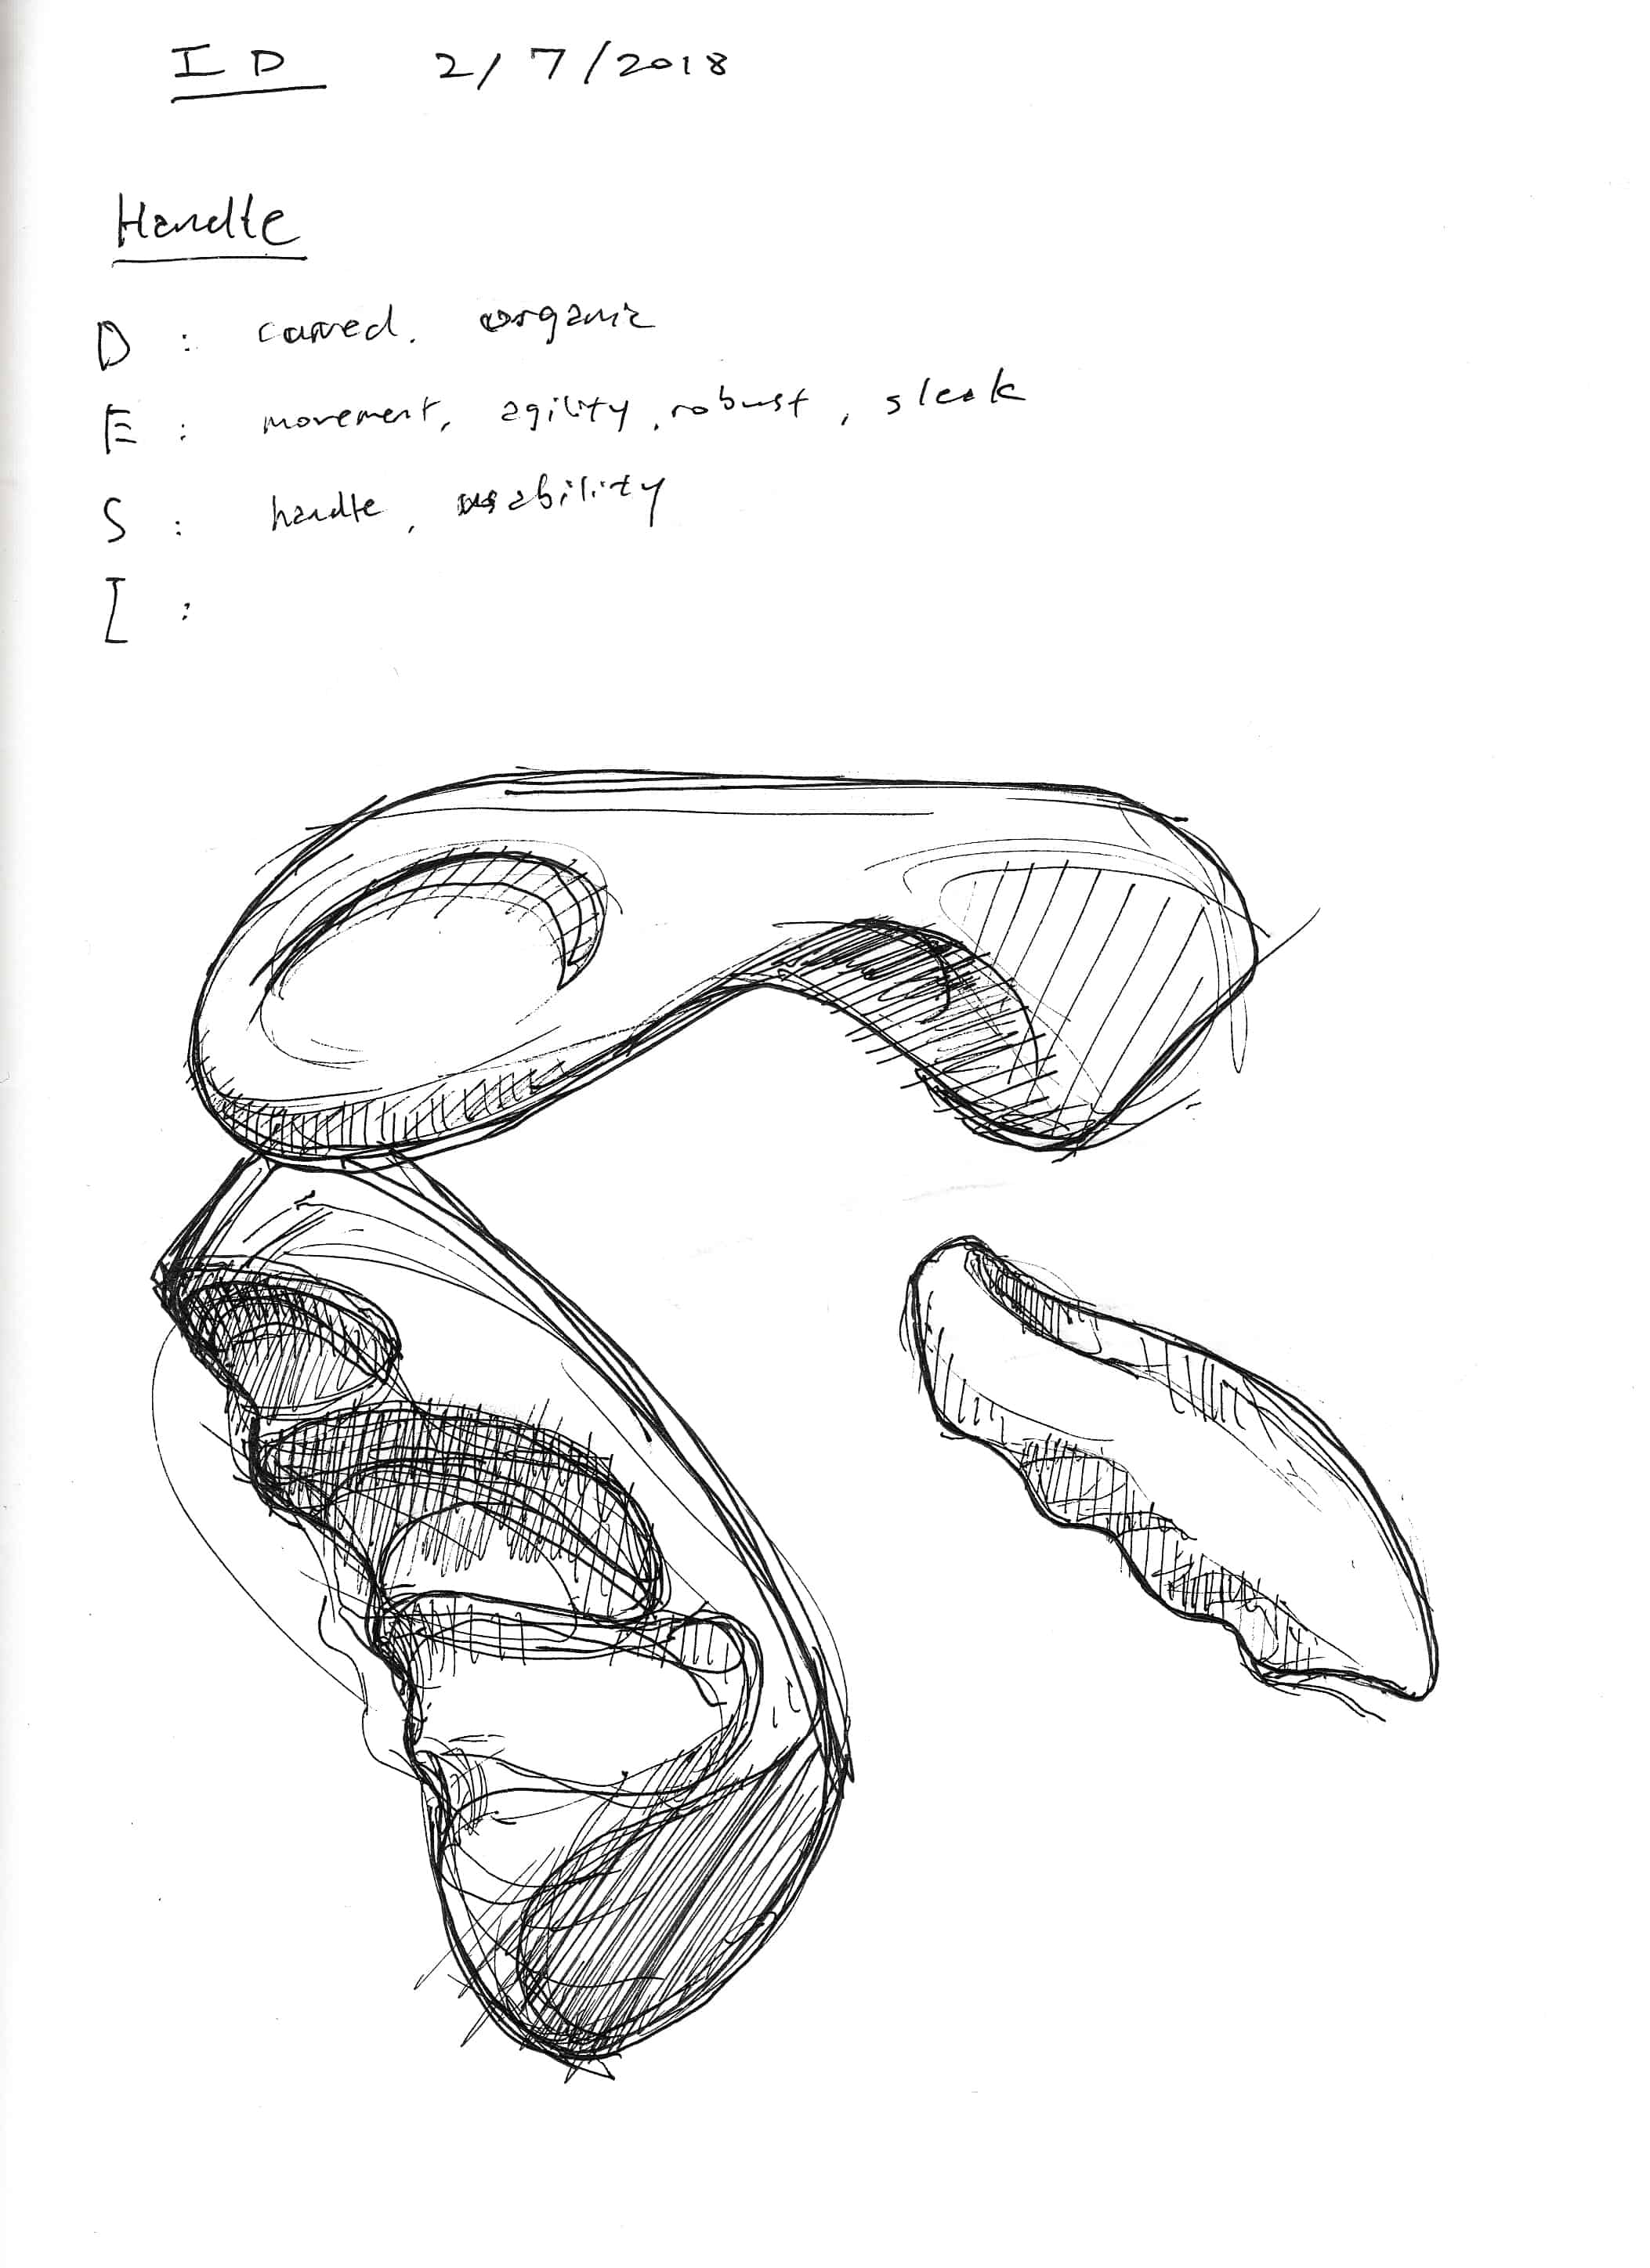 ID 2/7/2018
Handle
D : curved. organic
E : movement, agility, robust, sleek
S : handle, usability
I :